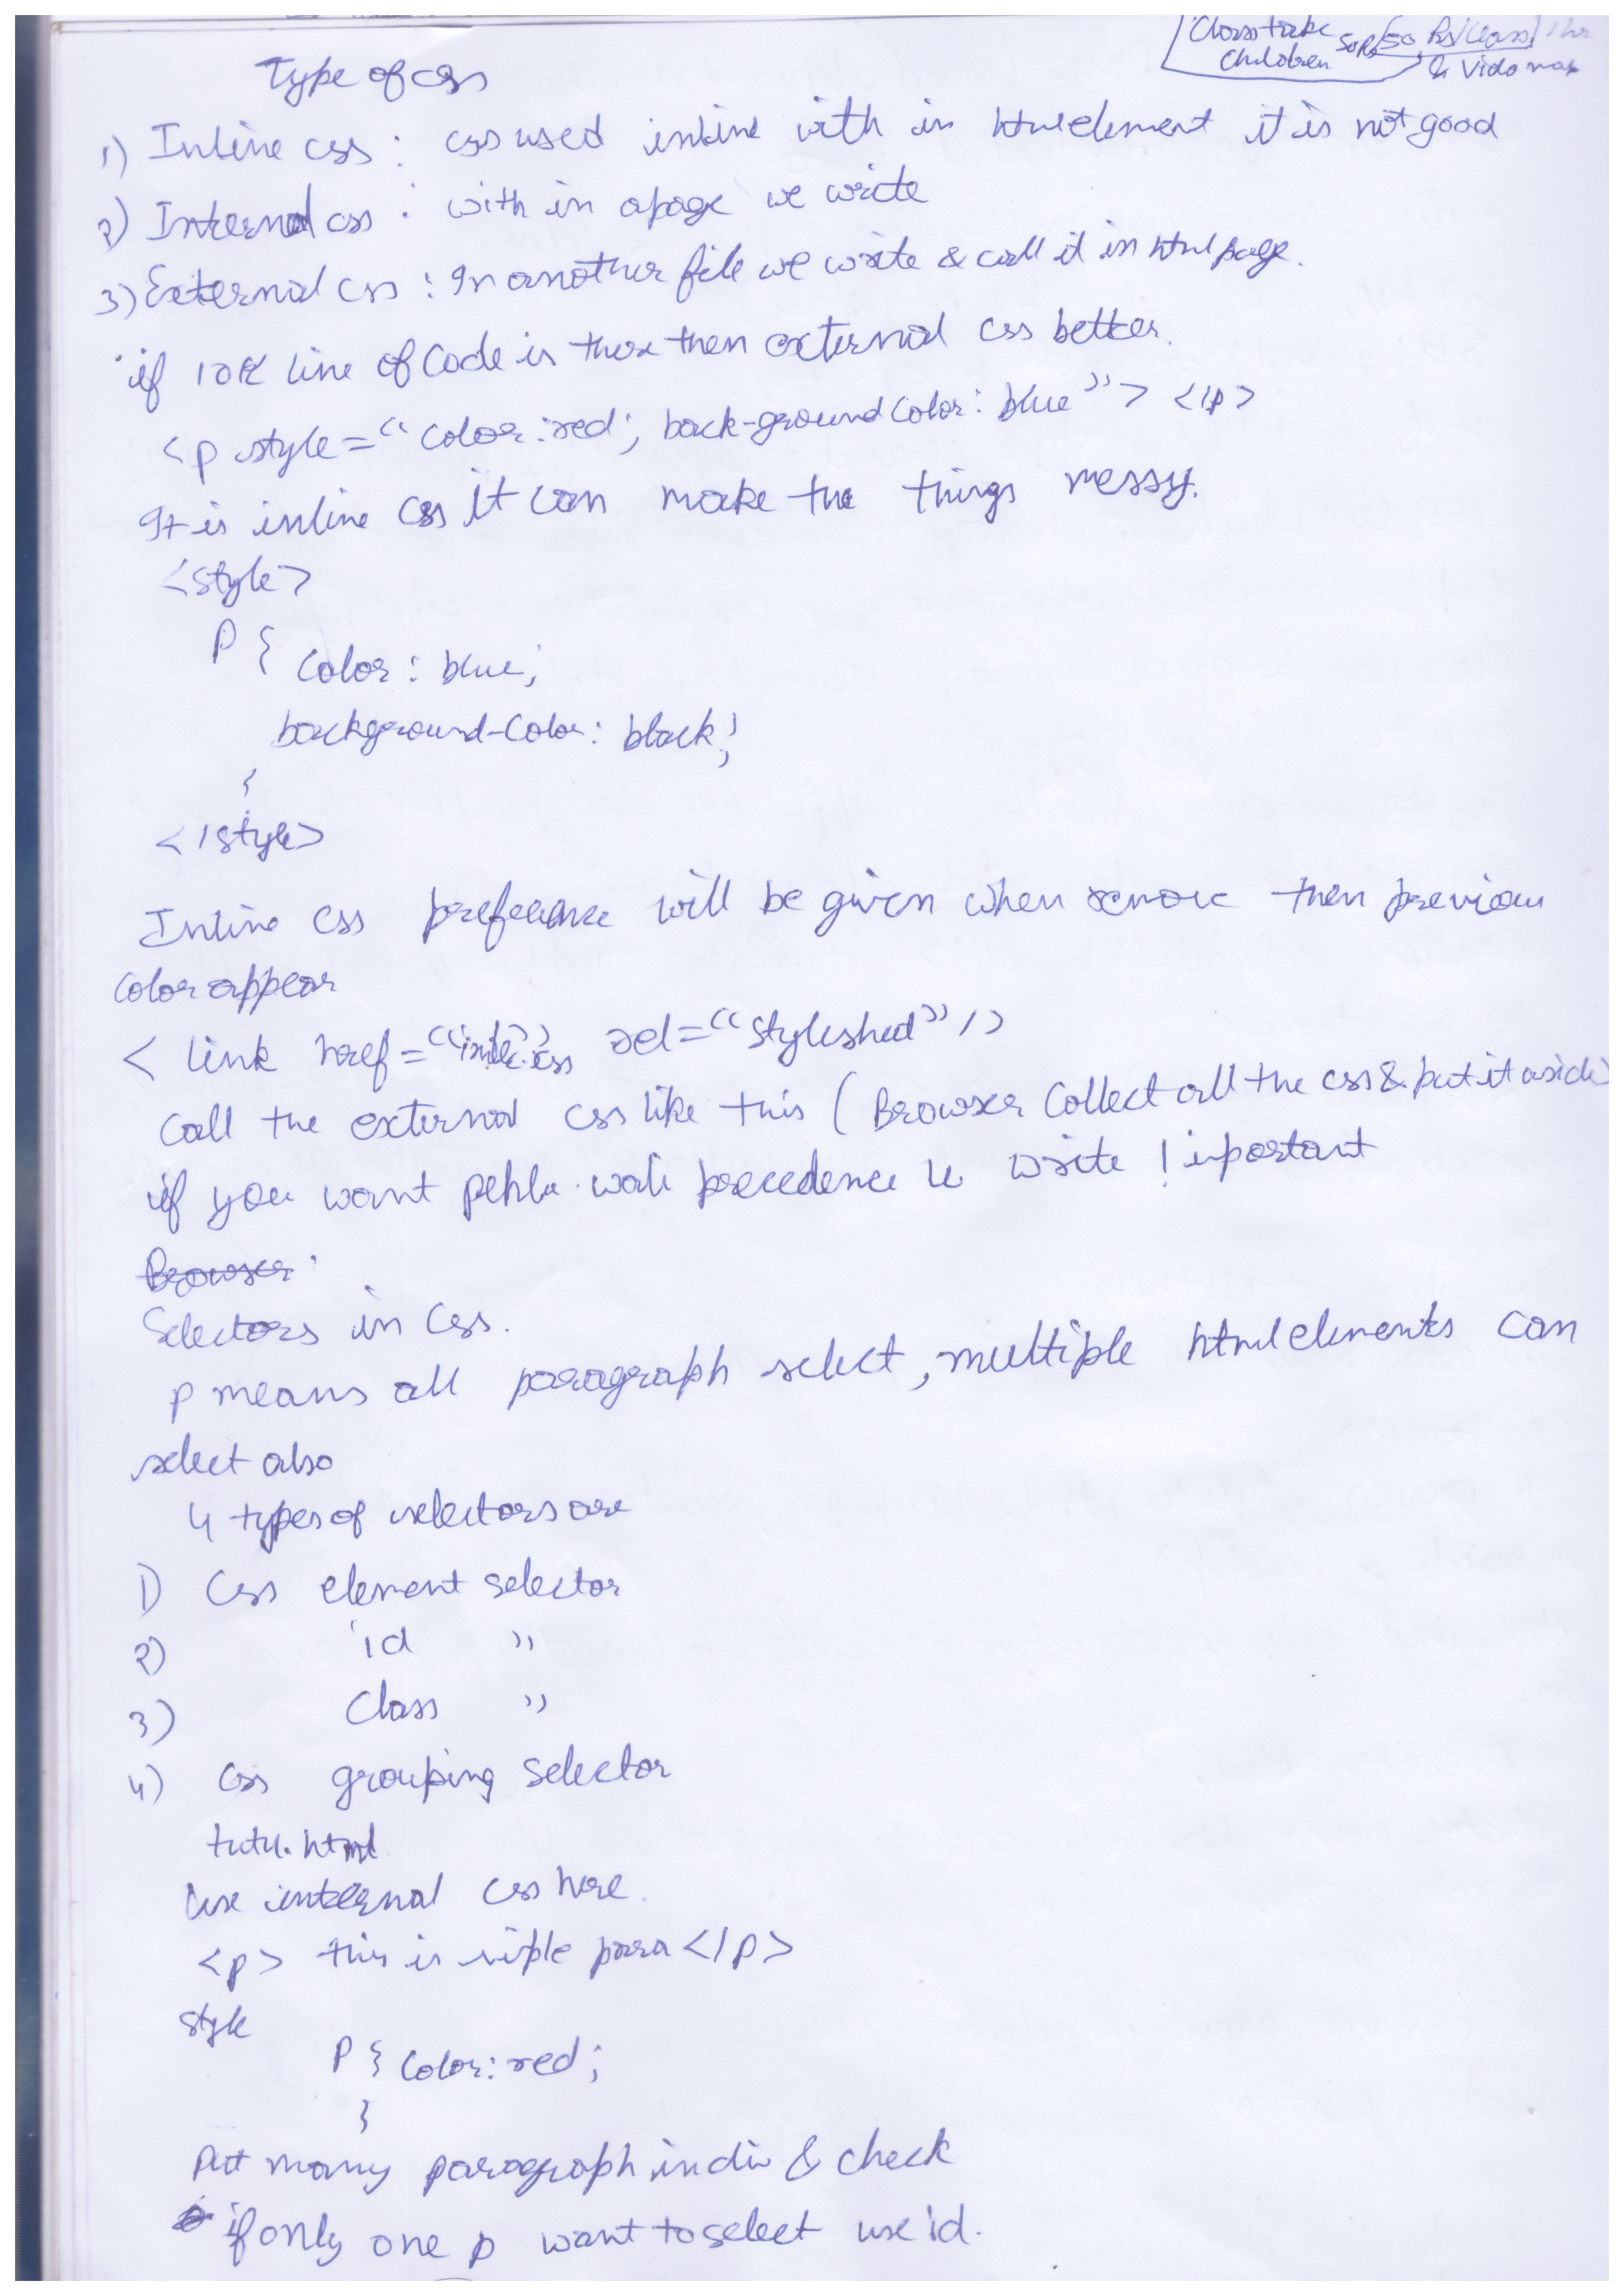 Class take 50Rs/50 Rs/Class/1hr
Children & Vido mar
Type of css
1) Inline css : css used inline with in html element it is not good
2) Internal css : with in a page we write
3) External css : In another file we write & call it in html page.
if 10K line of Code is there then external css better.
<p style="color:red; back-ground color: blue"> </p>
It is inline css it can make the things messy.
<style>
P { Color : blue;
background-Color: black;
}
</style>
Inline css preferance will be given when remove then previous
color appear
< link href=" .css rel="stylesheet" />
Call the external css like this ( Browser Collect all the css & put it aside)
if you want pehla wali precedence le write ! iportant
Browser :
Selectors in Css.
p means all paragraph select, multiple html elements can
select also
4 types of selectors are
1) Css element selector
2) id "
3) Class "
4) Css grouping selector
tutu. html
Use internal css here.
<p> this is siple para </p>
style
P { Color: red;
}
Put many paragraph in div & check
if only one p want to select use id.